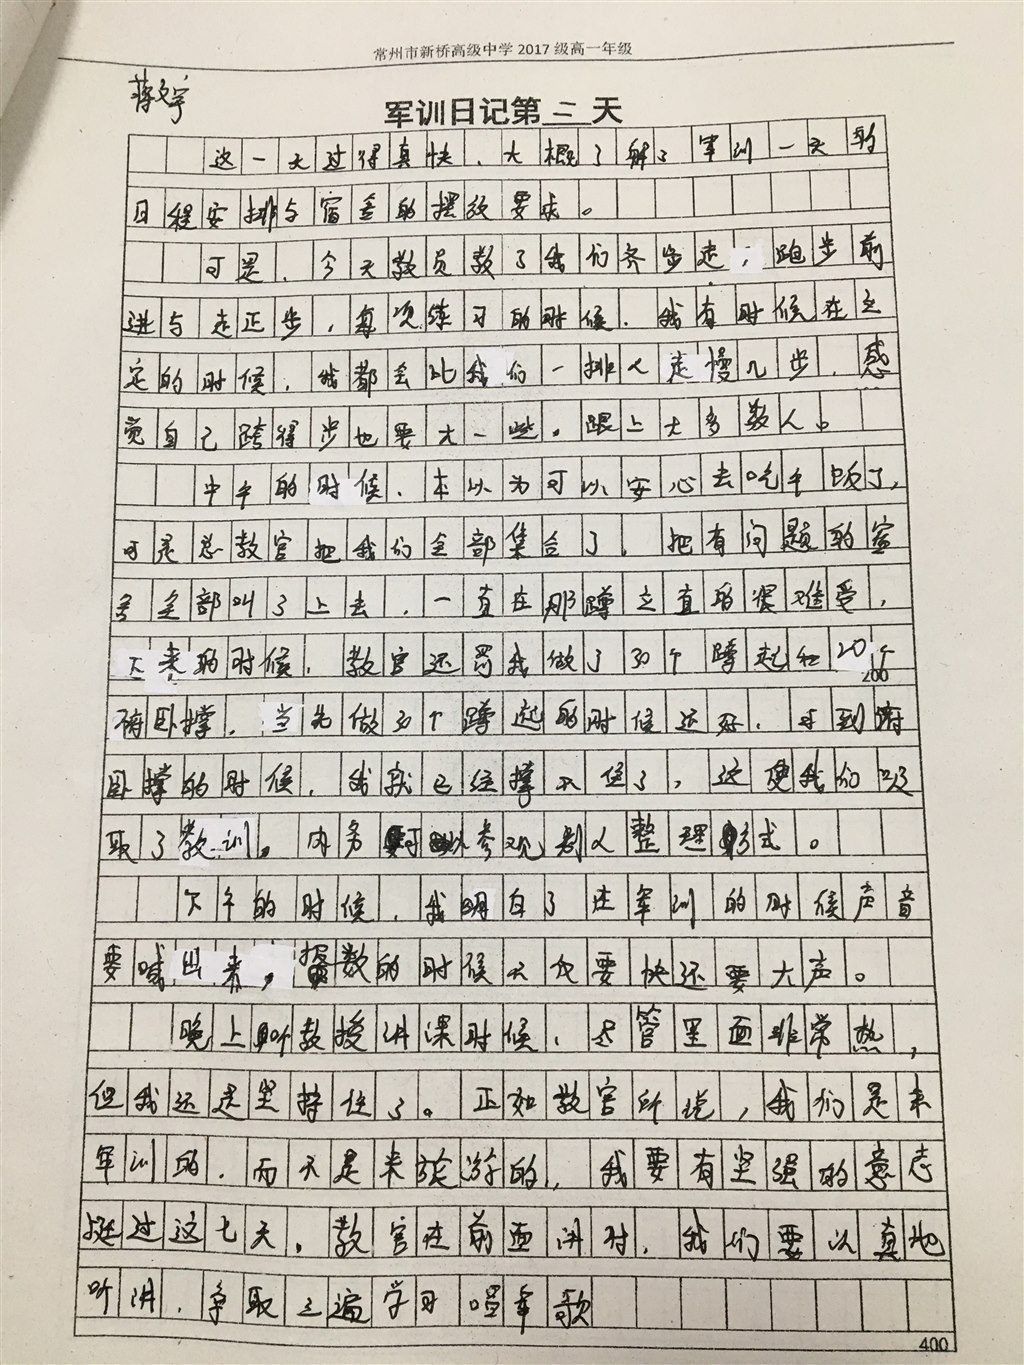 常州市新桥高级中学 2017 级高一年级
蒋文宇
军训日记第二天
这一天过得真快，大概了解了军训一天的
日程安排与宿舍的摆放要求。
可是，今天教员教了我们齐步走，跑步前
进与走正步，每项练习的时候，我有时候在立
定的时候，我都会比我们一排人走慢几步，感
觉自己跨得步也要大一些。跟上大多数人。
中午的时候，本以为可以安心去吃午饭了，
可是总教官把我们全部集合了，把有问题的宿
舍全部叫了上去，一直在那蹲立直的很难受，
下来的时候，教官还罚我做了30个蹲起和20个
200
俯卧撑，当光做30个蹲起的时候还好，才到俯
卧撑的时候，我就已经撑不住了，这使我们吸
取了教训。内务可以参观别人整理形式。
下午的时候，我明白了在军训的时候声音
要喊出来，报数的时候不仅要快还要大声。
晚上听教授讲课时候，尽管里面非常热，
但我还是坚持住了。正如教官所说，我们是来
军训的，而不是来旅游的，我要有坚强的意志
挺过这七天，教官在前面讲时，我们要认真地
听讲，争取三遍学习唱军歌
400